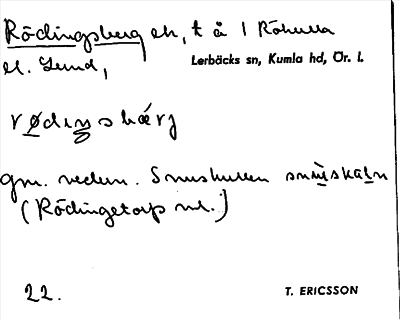 Rödingsberg eh, t å 1 Röhulla
el. Lund,
Lerbäcks sn, Kumla hd, Ör. l.
rødiŋsbærj
gm. nedm. Snushulten
(Rödingetorp nl.)
22.
T. ERICSSON